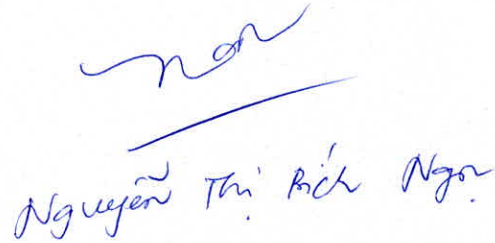 Nguyễn Thị Bích Ngọc